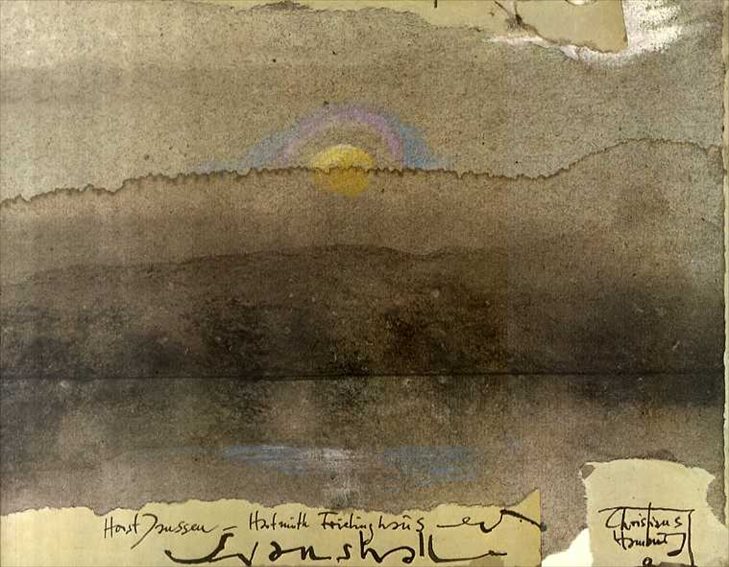 Horst Janssen – Hartmuth Frielinghaus ed
Svanshall
Christians
Hamburg